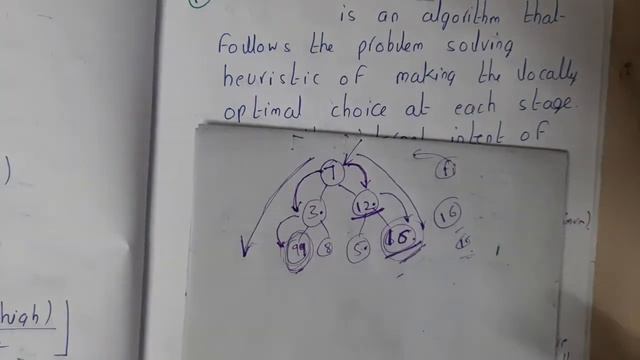 is an algorithm that
follows the problem solving
heuristic of making the locally
optimal choice at each stage.
intent of
7
3.
12.
99
8
5.
16.
16
)
high)